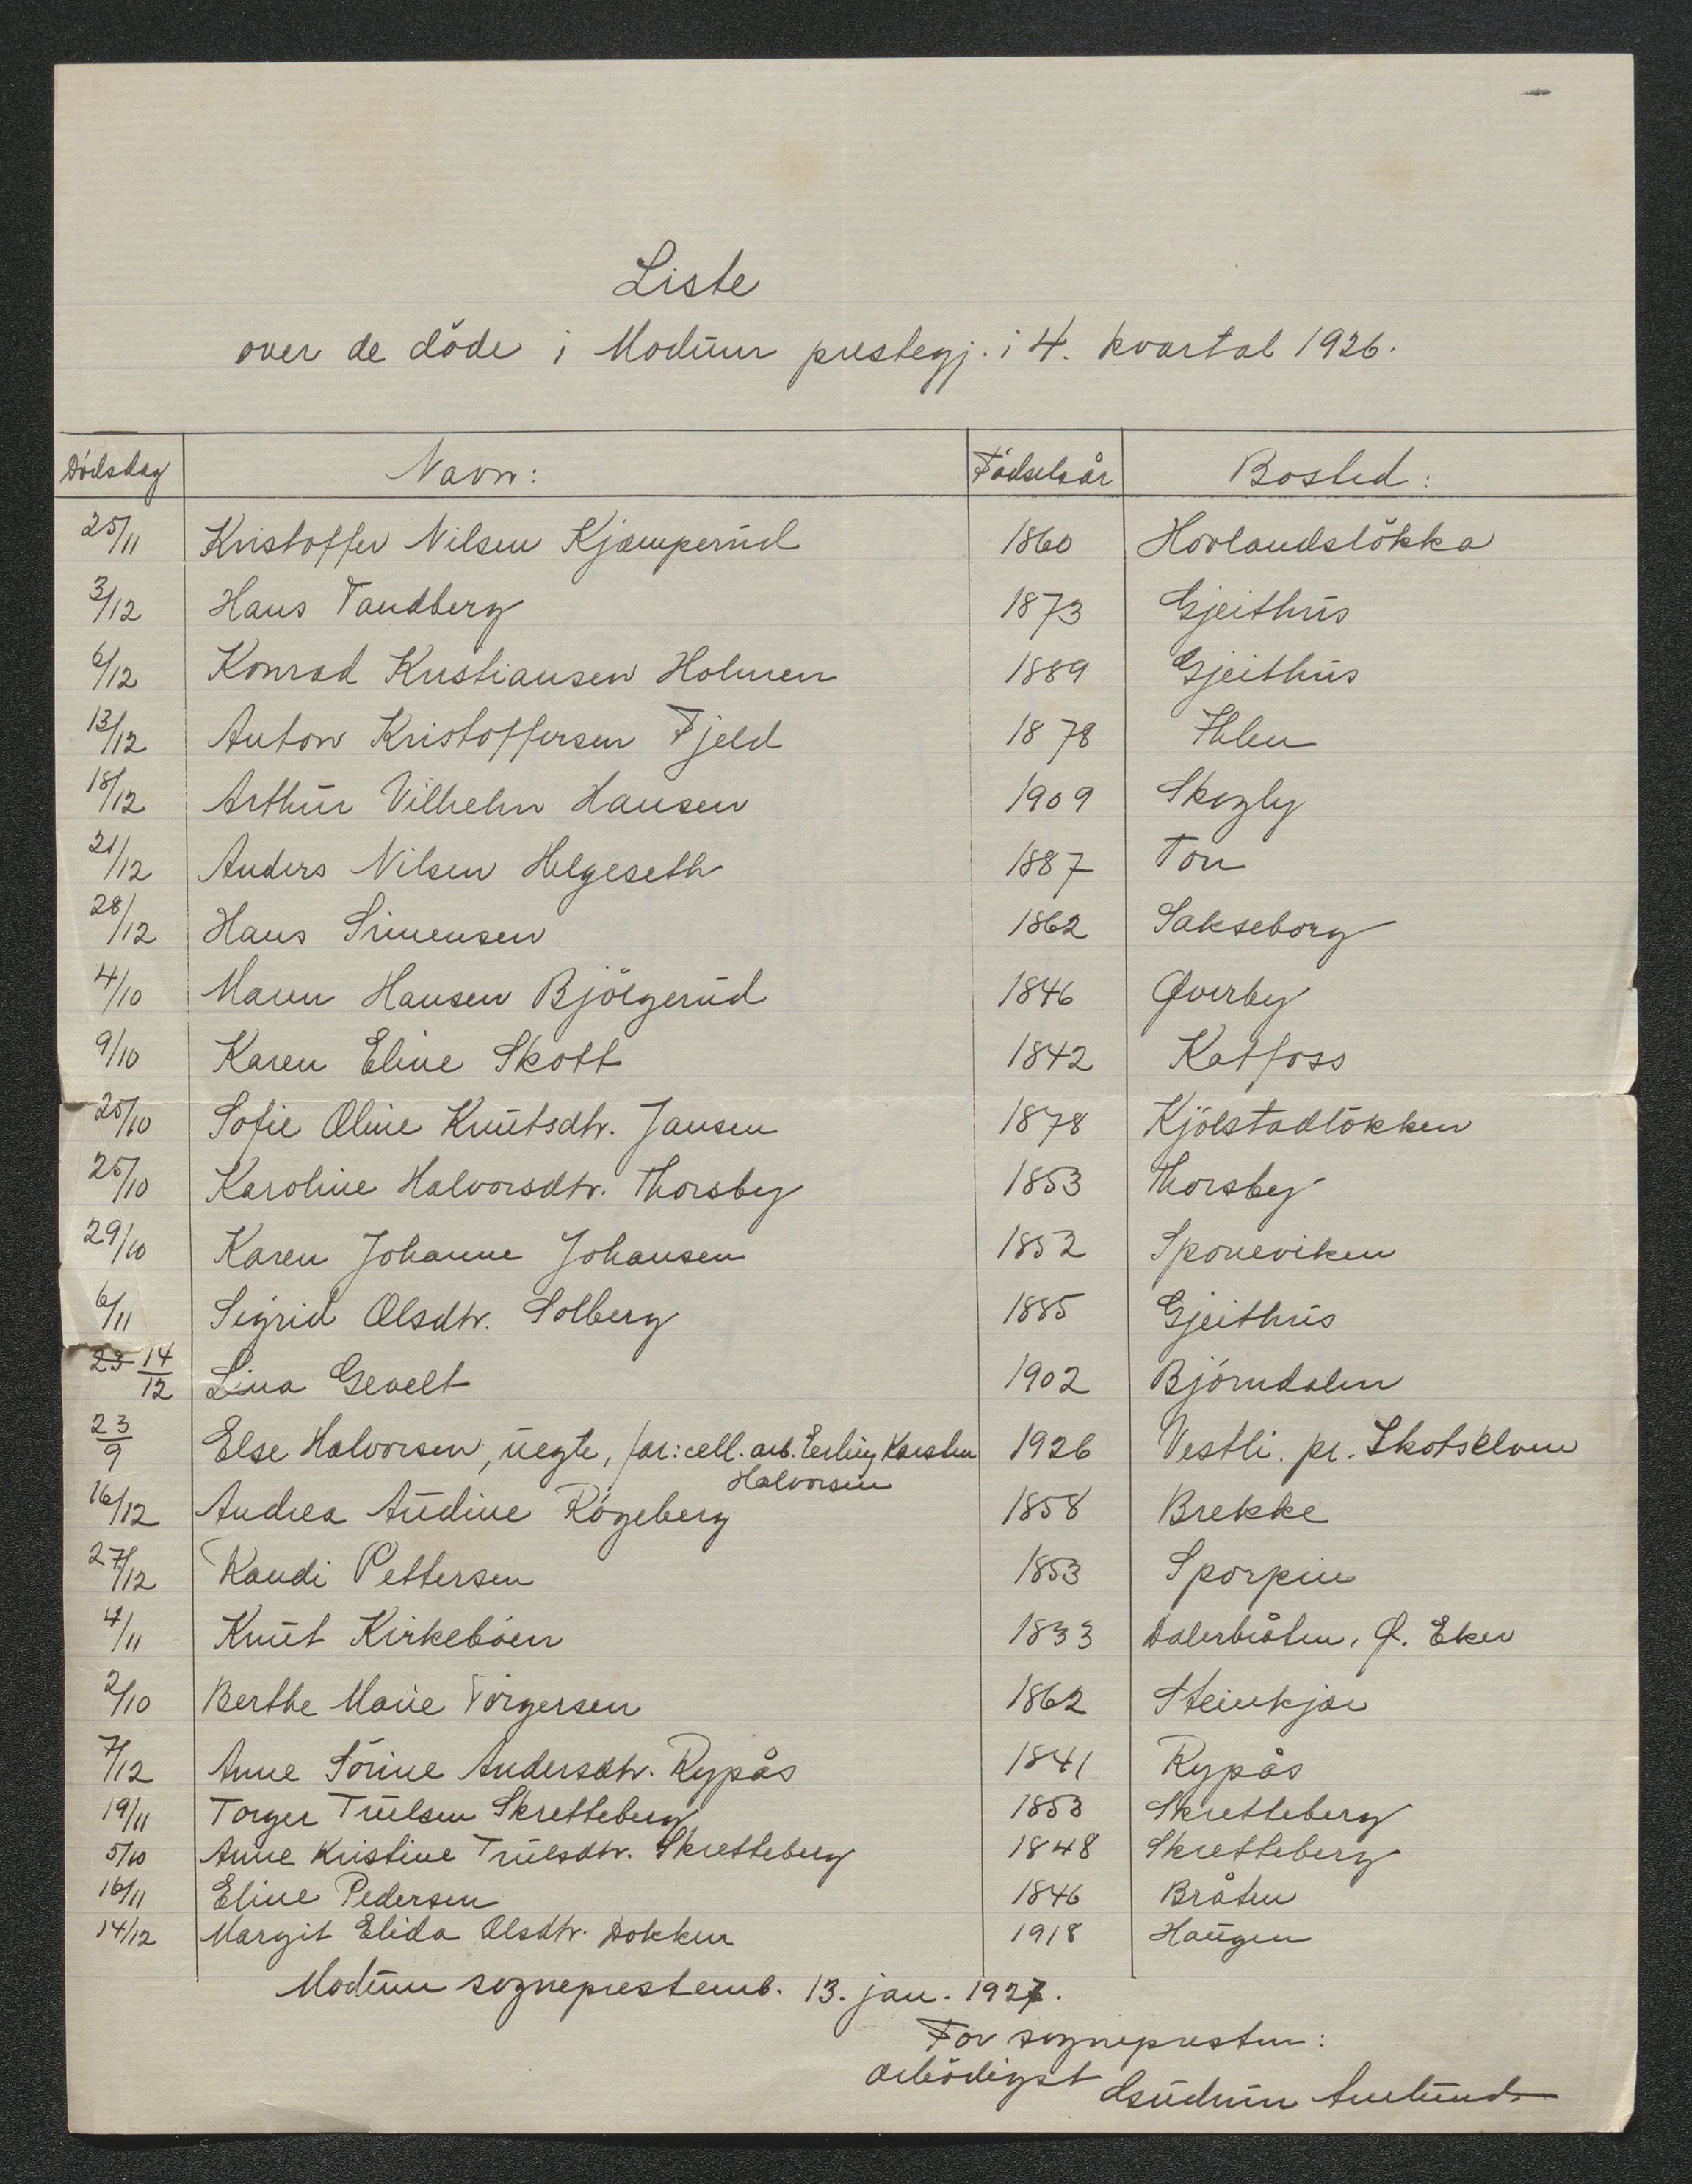 Liste
over de døde i Modum prestegj. i 4. kvartal 1926.
Dødsdag Navn: Fødselsår Bosted:
25/11 Kristoffer Nilsen Kjæmperud 1860 Hovlandsløkka
3/12 Hans Tandberg 1873 Gjeithus
6/12 Konrad Kristiansen Holmen 1889 Gjeithus
13/12 Anton Kristoffersen Fjeld 1878 Ihlen
18/12 Arthur Vilhelm Hansen 1909 Skogly
21/12 Anders Nilsen Helgeseth 1887 Ton
28/12 Hans Simensen 1862 Sakseborg
4/10 Maren Hansen Bjølgerud 1846 Øverby
9/10 Karen Eline Skott 1842 Katfoss
25/10 Sofie Oline Knutsdtr. Jansen 1878 Kjølstadløkken
25/10 Karoline Halvorsdtr. Thorsby 1853 Thorsby
29/10 Karen Johanne Johansen 1852 Sponeviken
6/11 Sigrid Olsdtr. Solberg 1885 Gjeithus
23 14/12 Lina Gevelt 1902 Bjørndalen
23/9 Else Halvorsen, uegte, far: cell. arb. Erling Karsten 1926 Vestli. pr. Skotselven
Halvorsen
16/12 Andrea Audine Røgeberg 1858 Brekke
27/12 Randi Pettersen 1853 Sporpin
4/11 Knut Kirkebøen 1833 Dalerbråten, Ø. Eker
2/10 Berthe Marie Torgersen 1862 Steinkjær
7/12 Anne Sørine Andersdtr. Rypås 1841 Rypås
19/11 Torger Truelsen Skretteberg 1853 Skretteberg
5/10 Anne Kristine Truelsdtr. Skretteberg 1848 Skretteberg
16/11 Eline Pedersen 1846 Bråten
14/12 Margit Elida Olsdtr. Dokken 1918 Haugen
Modum sogneprestemb. 13. jan. 1927.
For sognepresten:
ærbødigst
Gudrun